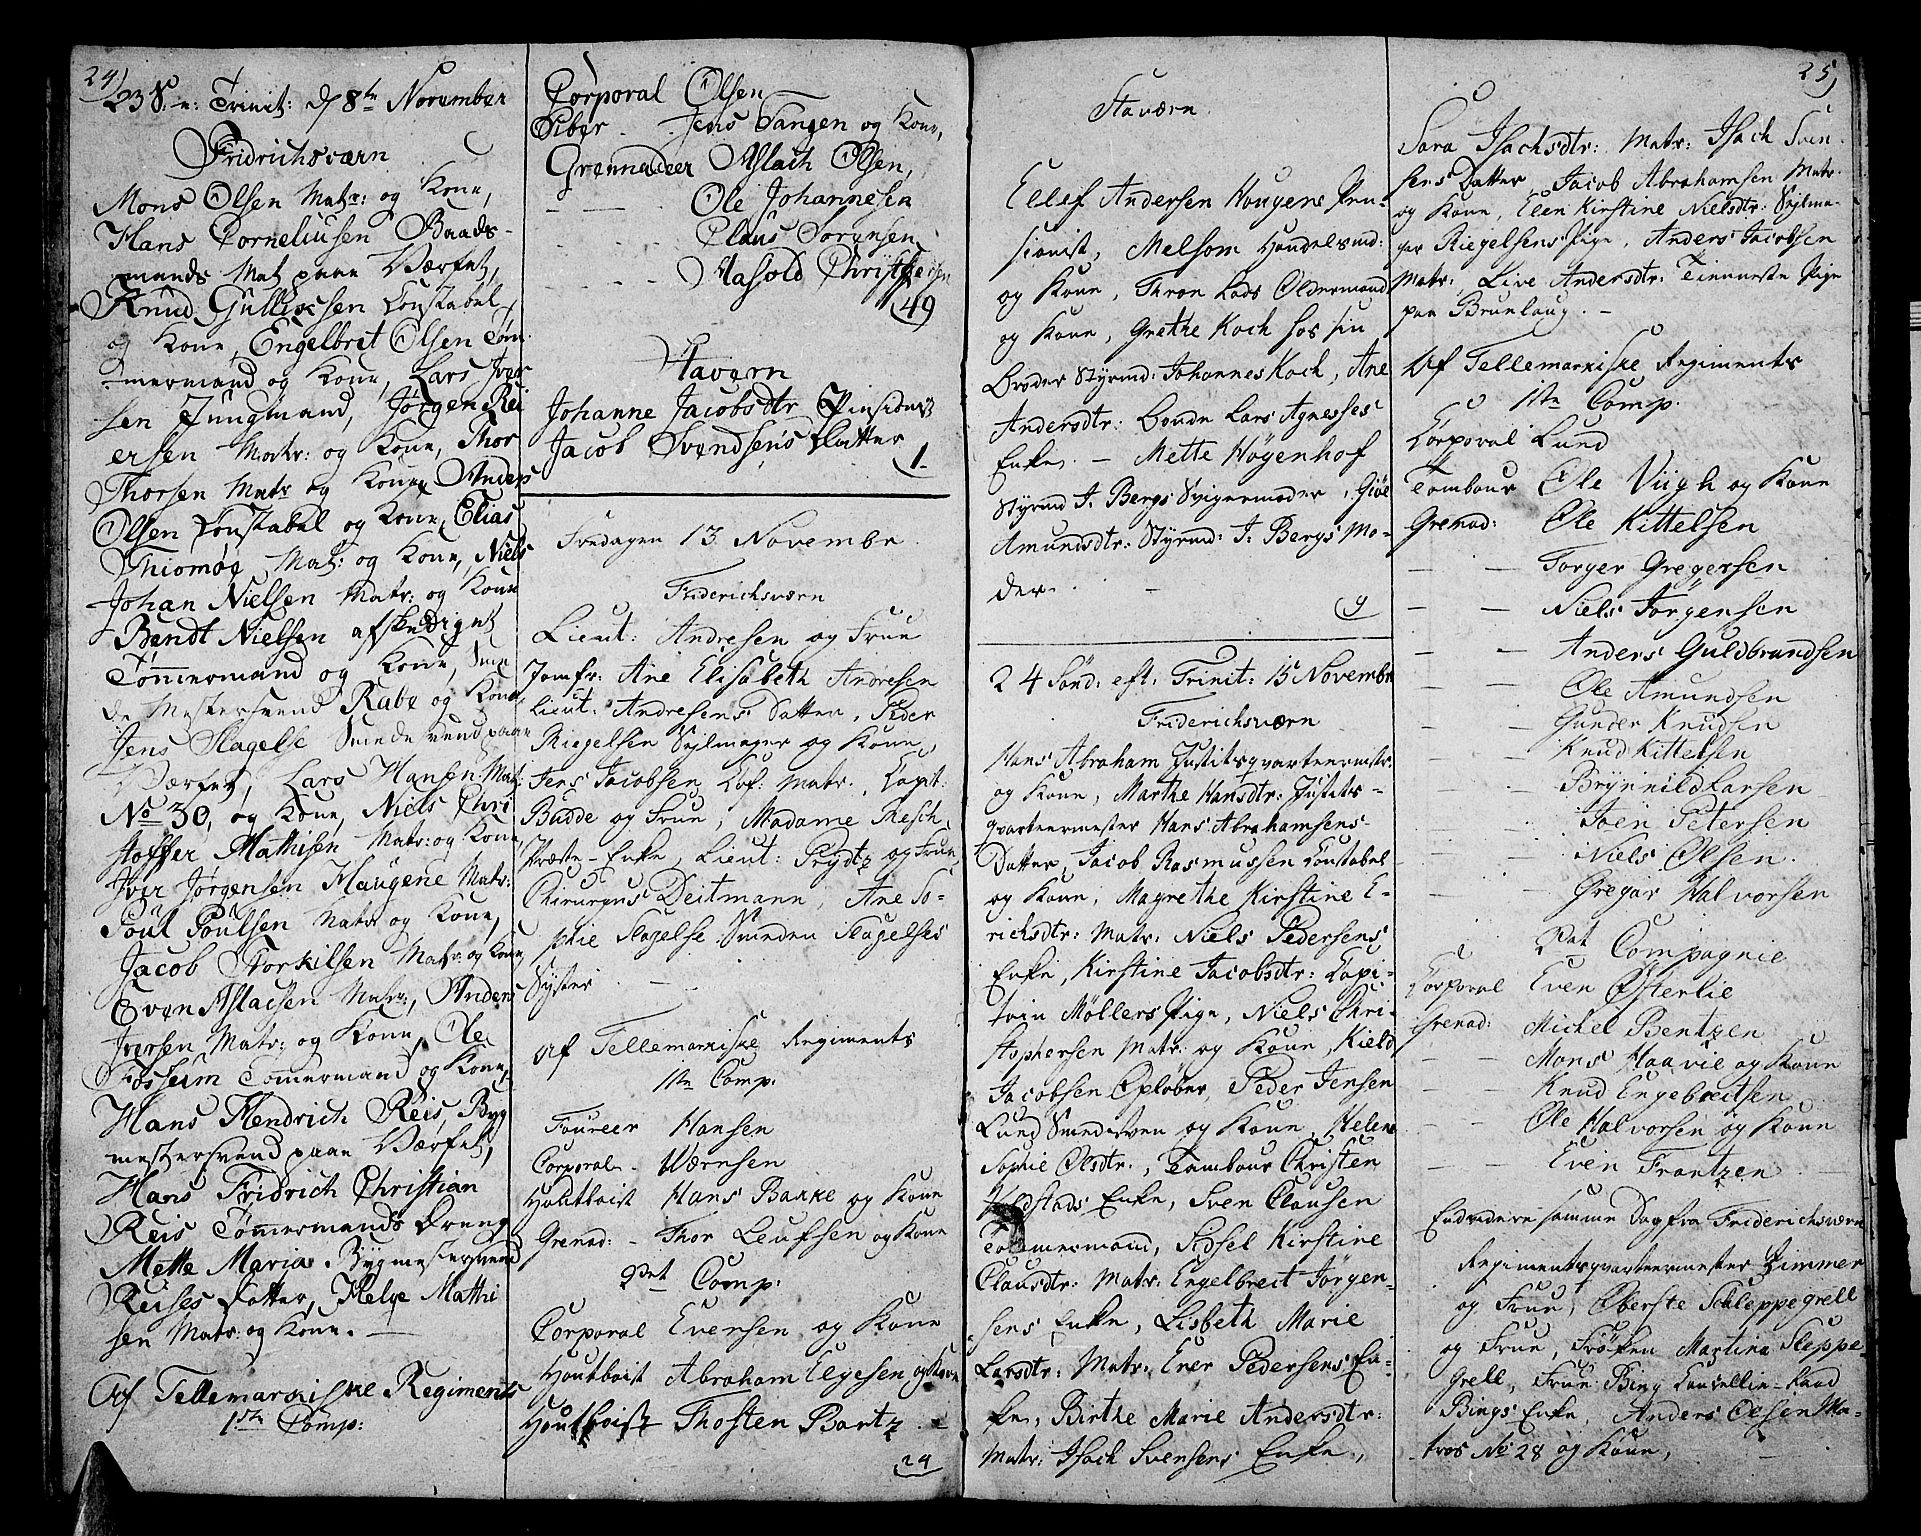 24)
23 S. e: Trinit: d 8de November
Fridrichsværn
Mons Olsen Matr: og Kone,
Hans Corneliusen Baads-
mands Mat paa Værfet,
Knud Gullicsen Constabel
og Kone, Engelbret Olsen Tøm-
mermand og Kone, Lars Iver
sen Jungmand, Jørgen Rei
ersen Matr: og Kone, Thor
Thorsen Matr og Kone Anders
Olsen Constabel og Kone, Elias
Thiomøe Mat: og Kone, Niels
Johan Nielsen Matr: og Kone
Bendt Nielsen afskediget
Tømmermand og Kone, Sme
de Mestersvend Rabe og Kone
Jens Slagelse Smedesvend paa
Værfet, Lars Hansen Mat:
No 30, og Kone, Niels Chri
stoffer Mathisen Matr: og Kone,
Iver Jørgensen Haugene Matr:
Poul Poulsen Matr og Kone,
Jacob Torkilsen Matr: og Kone
Even Aslacsen Matr:, Anders
Iversen Matr: og Kone, Ole
Fosheim Tømermand og Kone,
Hans Hendrich Reis Byg
mestersvend paa Værfet,
Hans Fridrich Christian
Reis Tømermands Dreng
Mette Maria Bygmestersvend
Reises Datter, Helge Mathi
sen Matr: og Kone.
Af Tellemarkiske Regiments
1ste Comp:
Corporal Olsen
Piber Jens Tangen og Kone,
Grennadeer Aslach Olsen,
- - - Ole Johannesen
- - - Claus Sørensen
- - - Hasold Christophersen
49
Stavern
Johanne Jacobsdtr Pinsionist
Jacob Svendsens Datter
1
Fredagen 13 Novembr.
Friderichsværn
Lieut: Andresen og Frue
Jomfr: Ane Elisabeth Andresen
Lieut: Andresens Datter, Peder
Riegelsen Sejlmager og Kone,
Jens Jacobsen Cof: Matr., Capit:
Budde og Frue, Madame Resch,
Præste-Enke, Lieut: Prydtz og Frue
Chirurgus Deitmann, Ane So-
phie Slagelse Smeden Slagelses
Syster
Af Tellemarkiske Regiments
1ste Comp:
Foureer Hansen
Corporal - Wærnsen
Houtboist Hans Bakke og Kone
Grenad: - Thor Leufsen og Kone
2det Comp:
Corporal Evensen og Kone
Houtboist Abraham Elgesen og Kone
Houtboist Thosten Bartz
24
Staværn.
Ellef Andersen Hougens Pen-
sionist, Melsom Handelsmd:
og Kone, Thron Lods Oldermand
og Kone, Grethe Koch hos sin
Broder Styrmd: Johannes Koch, Ane
Andersdtr: Bonde Lars Agnesses
Enke. - Mette Høyenhof
Styrmd J. Bergs Svigermoder, Giøe
Amundsdtr: Styrmd: J. Bergs Mo-
der.
9
24 Sønd: eft: Trinit: 15 Novembr
Friderichsværn
Hans Abraham Justitsqvarteermstr:
og Kone, Marthe Hansdtr: Justits-
qvarteermester Hans Abrahamsens
Datter, Jacob Rasmussen Constabel
og Kone, Magrethe Kirstine E-
richsdtr: Matr: Niels Pedersens
Enke, Kirstine Jacobsdtr: Capi-
tain Møllers Pige, Niels Chri-
stophersen Matr: og Kone, Kield
Jacobsen Opløber, Peder Jensen
Lund Smedesven og Kone, Helene
Sophie Olsdtr., Tambour Christen
Enke, Sven Clausen
Tømmermand, Sidsel Kirstine
Clausdtr: Matr: Engelbreit Jørgen-
sens Enke, Lisbeth Marie
Larsdtr: Matr: Ener Pedersens En-
ke, Birthe Marie Andersdtr:
Matr: Isach Svensens Enke,
25)
Sara Isachsdtr: Matr: Isach Sven-
sens Datter Jacob Abrahamsen Matr.
og Kone, Elen Kirstine Nielsdtr: Sejlma-
ger Riegelsens Pige, Anders Jacobsen
Matr:, Live Andersdtr: Tienneste Pige
paa Brunlaug. -
Af Tellemarkiske Regiments
1ste Comp.
Corporal Lund
Tambour Ole Viigh og Kone
Grenad: Ole Kittelsen
- - Torger Gregersen
- - Niels Jørgensen
- - Anders Guldbrandsen
- - Ole Amundsen
- - Gunder Knudsen
- - Knud Kittelsen
- - Brynnild Larsen
- - Joen Petersen
- - Niels Olsen.
- - Gregar Halvorsen
2det Compagnie
Corporal Even Østerlie
Grenad: Michel Bentzen
- - Mons Haavie og Kone
- - Knud Engebreitsen
- - Ole Halvorsen og Kone
- - Even Frantzen
Endvidere samme Dag fra Friderichsværn
Regimentsqvarteermester Zimmer
og Frue, Oberste Schleppegrell
og Frue, Frøken Martina Sleppe-
grell, Frue Bing Cancellie-Raad
Bings Enke, Anders Olsen Ma-
tros No 28 og Kone,